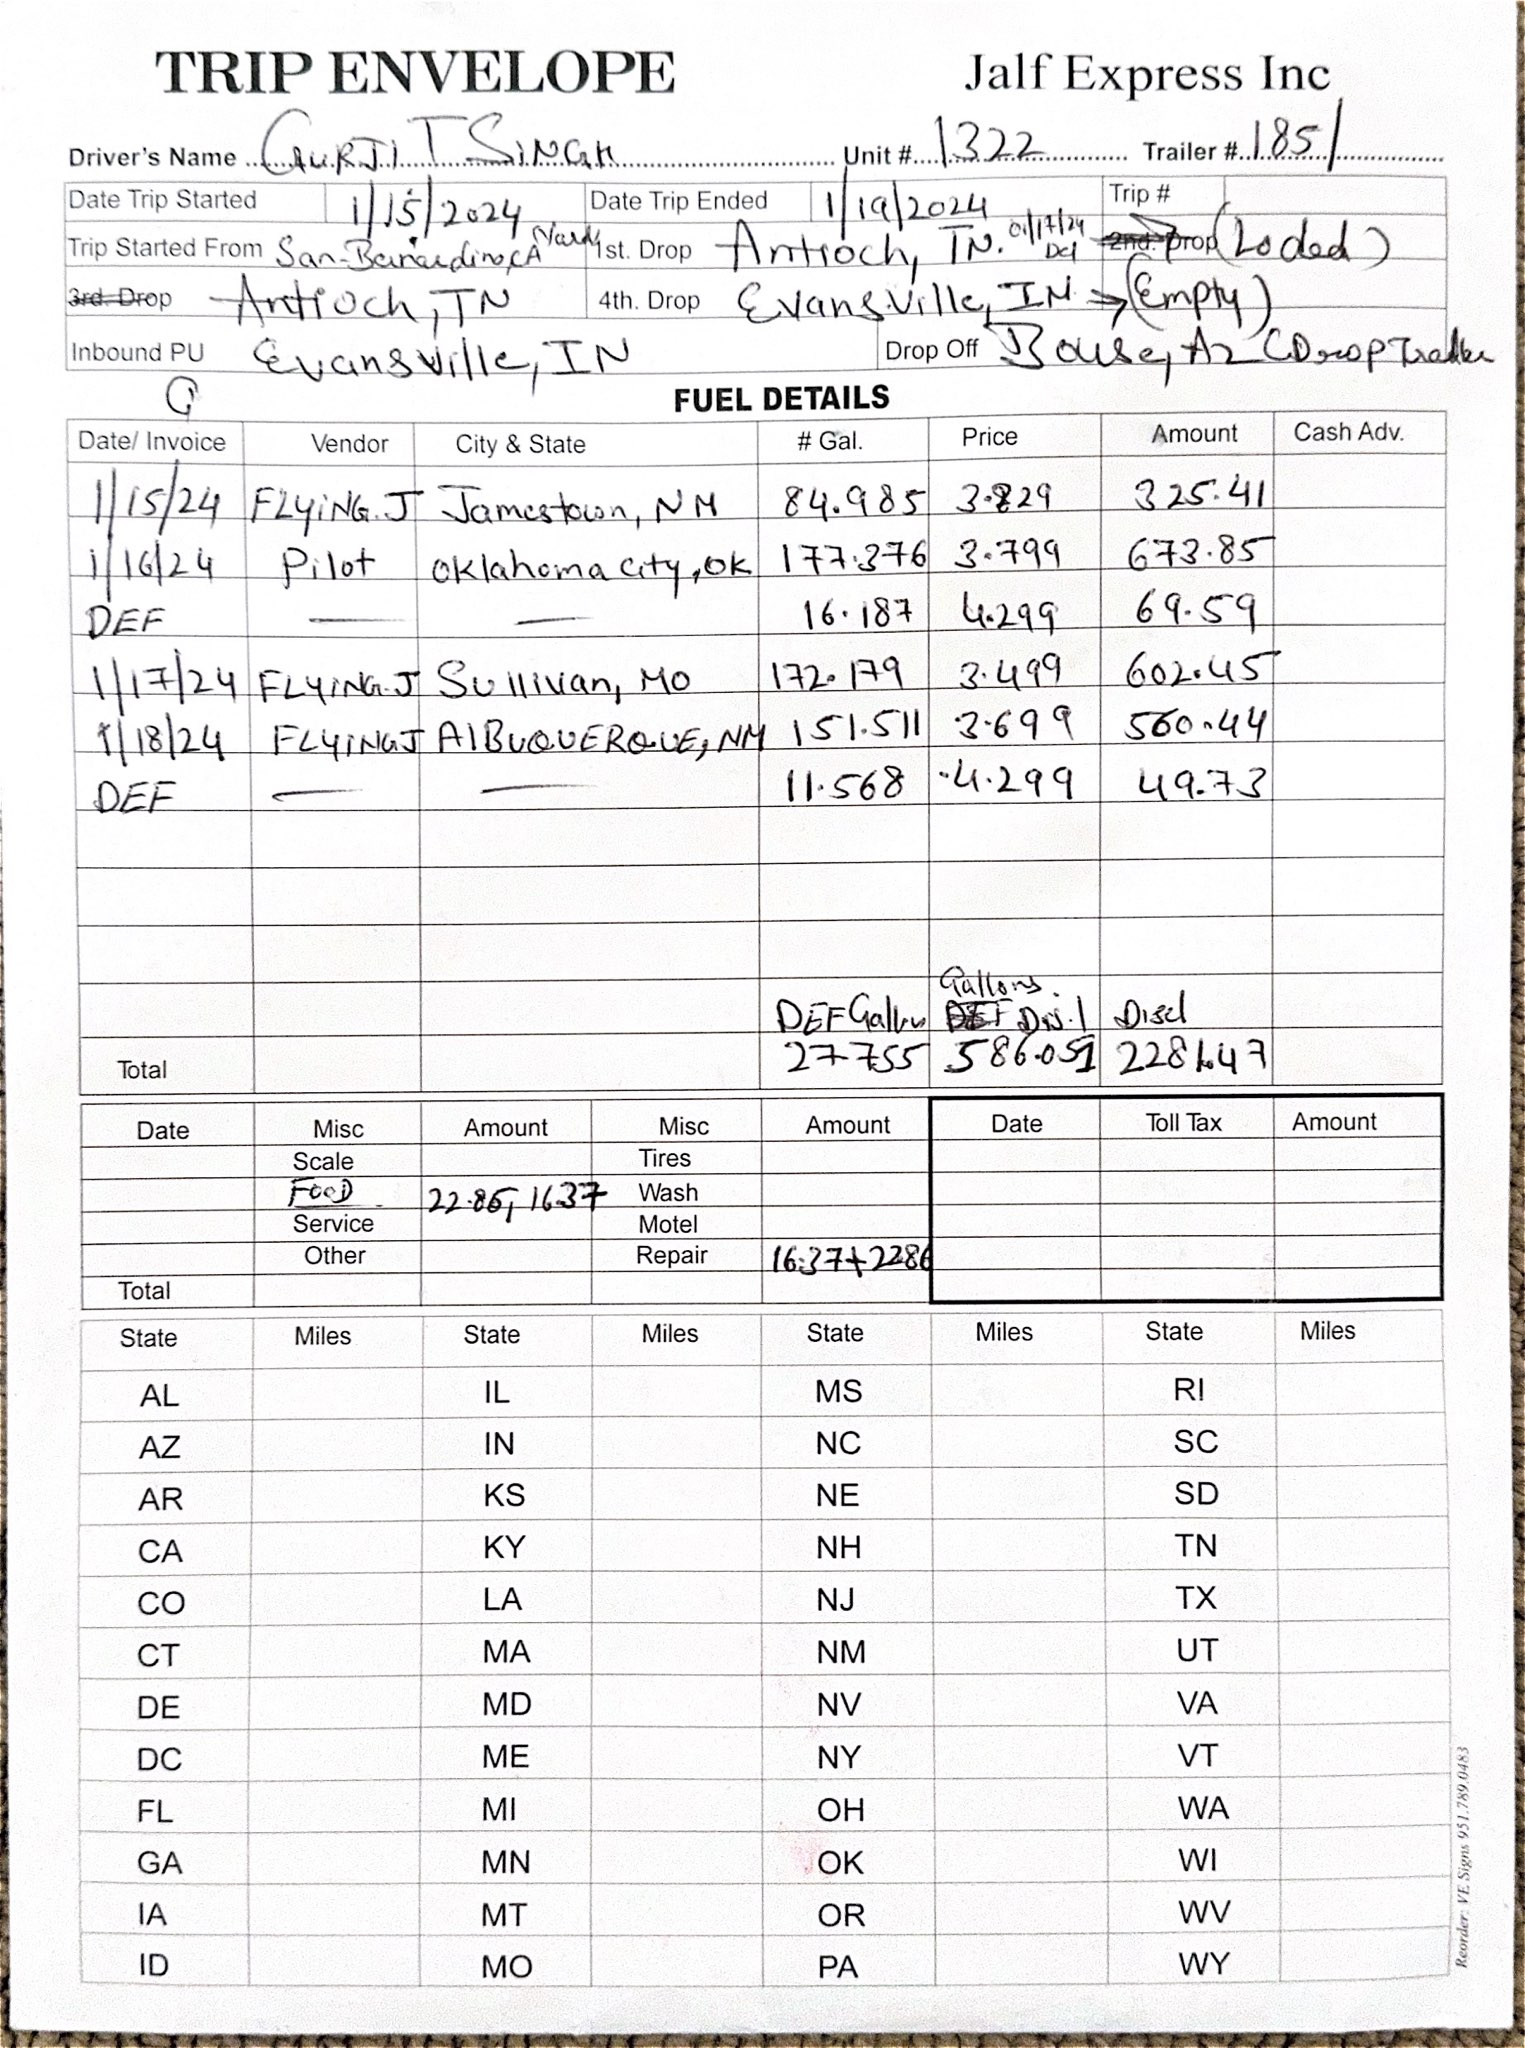 TRIP ENVELOPE Jalf Express Inc
Driver's Name GURJIT SINGH Unit # 1322 Trailer # 1851
Date Trip Started 1/15/2024 Date Trip Ended 1/19/2024 Trip #
Trip Started From San-Bernardino, CA Yard 1st. Drop Antioch, TN. 01/17/24 Del 2nd. Drop (Loded)
3rd. Drop Antioch, TN 4th. Drop Evansville, IN → (Empty)
Inbound PU Evansville, IN Drop Off Bouse, AZ (Drop Trailer
FUEL DETAILS
Date/ Invoice Vendor City & State # Gal. Price Amount Cash Adv.
1/15/24 FLYING.J Jamestown, NM 84.985 3.829 325.41
1/16/24 Pilot Oklahoma city, OK 177.376 3.799 673.85
DEF — — 16.187 4.299 69.59
1/17/24 FLYING.J Sullivan, MO 172.179 3.499 602.45
1/18/24 FLYINGJ AlBUQUERQUE, NM 151.511 3.699 560.44
DEF — — 11.568 4.299 49.73
Gallons.
DEF Gallon DEF Disl Disel
Total 27755 586.051 2281.47
Date Misc Amount Misc Amount Date Toll Tax Amount
Scale Tires
FOOD 22.86, 16.37 Wash
Service Motel
Other Repair 16.37+2286
Total
State Miles State Miles State Miles State Miles
AL IL MS RI
AZ IN NC SC
AR KS NE SD
CA KY NH TN
CO LA NJ TX
CT MA NM UT
DE MD NV VA
DC ME NY VT
FL MI OH WA
GA MN OK WI
IA MT OR WV
ID MO PA WY
Reorder: VE Signs 951.789.0483